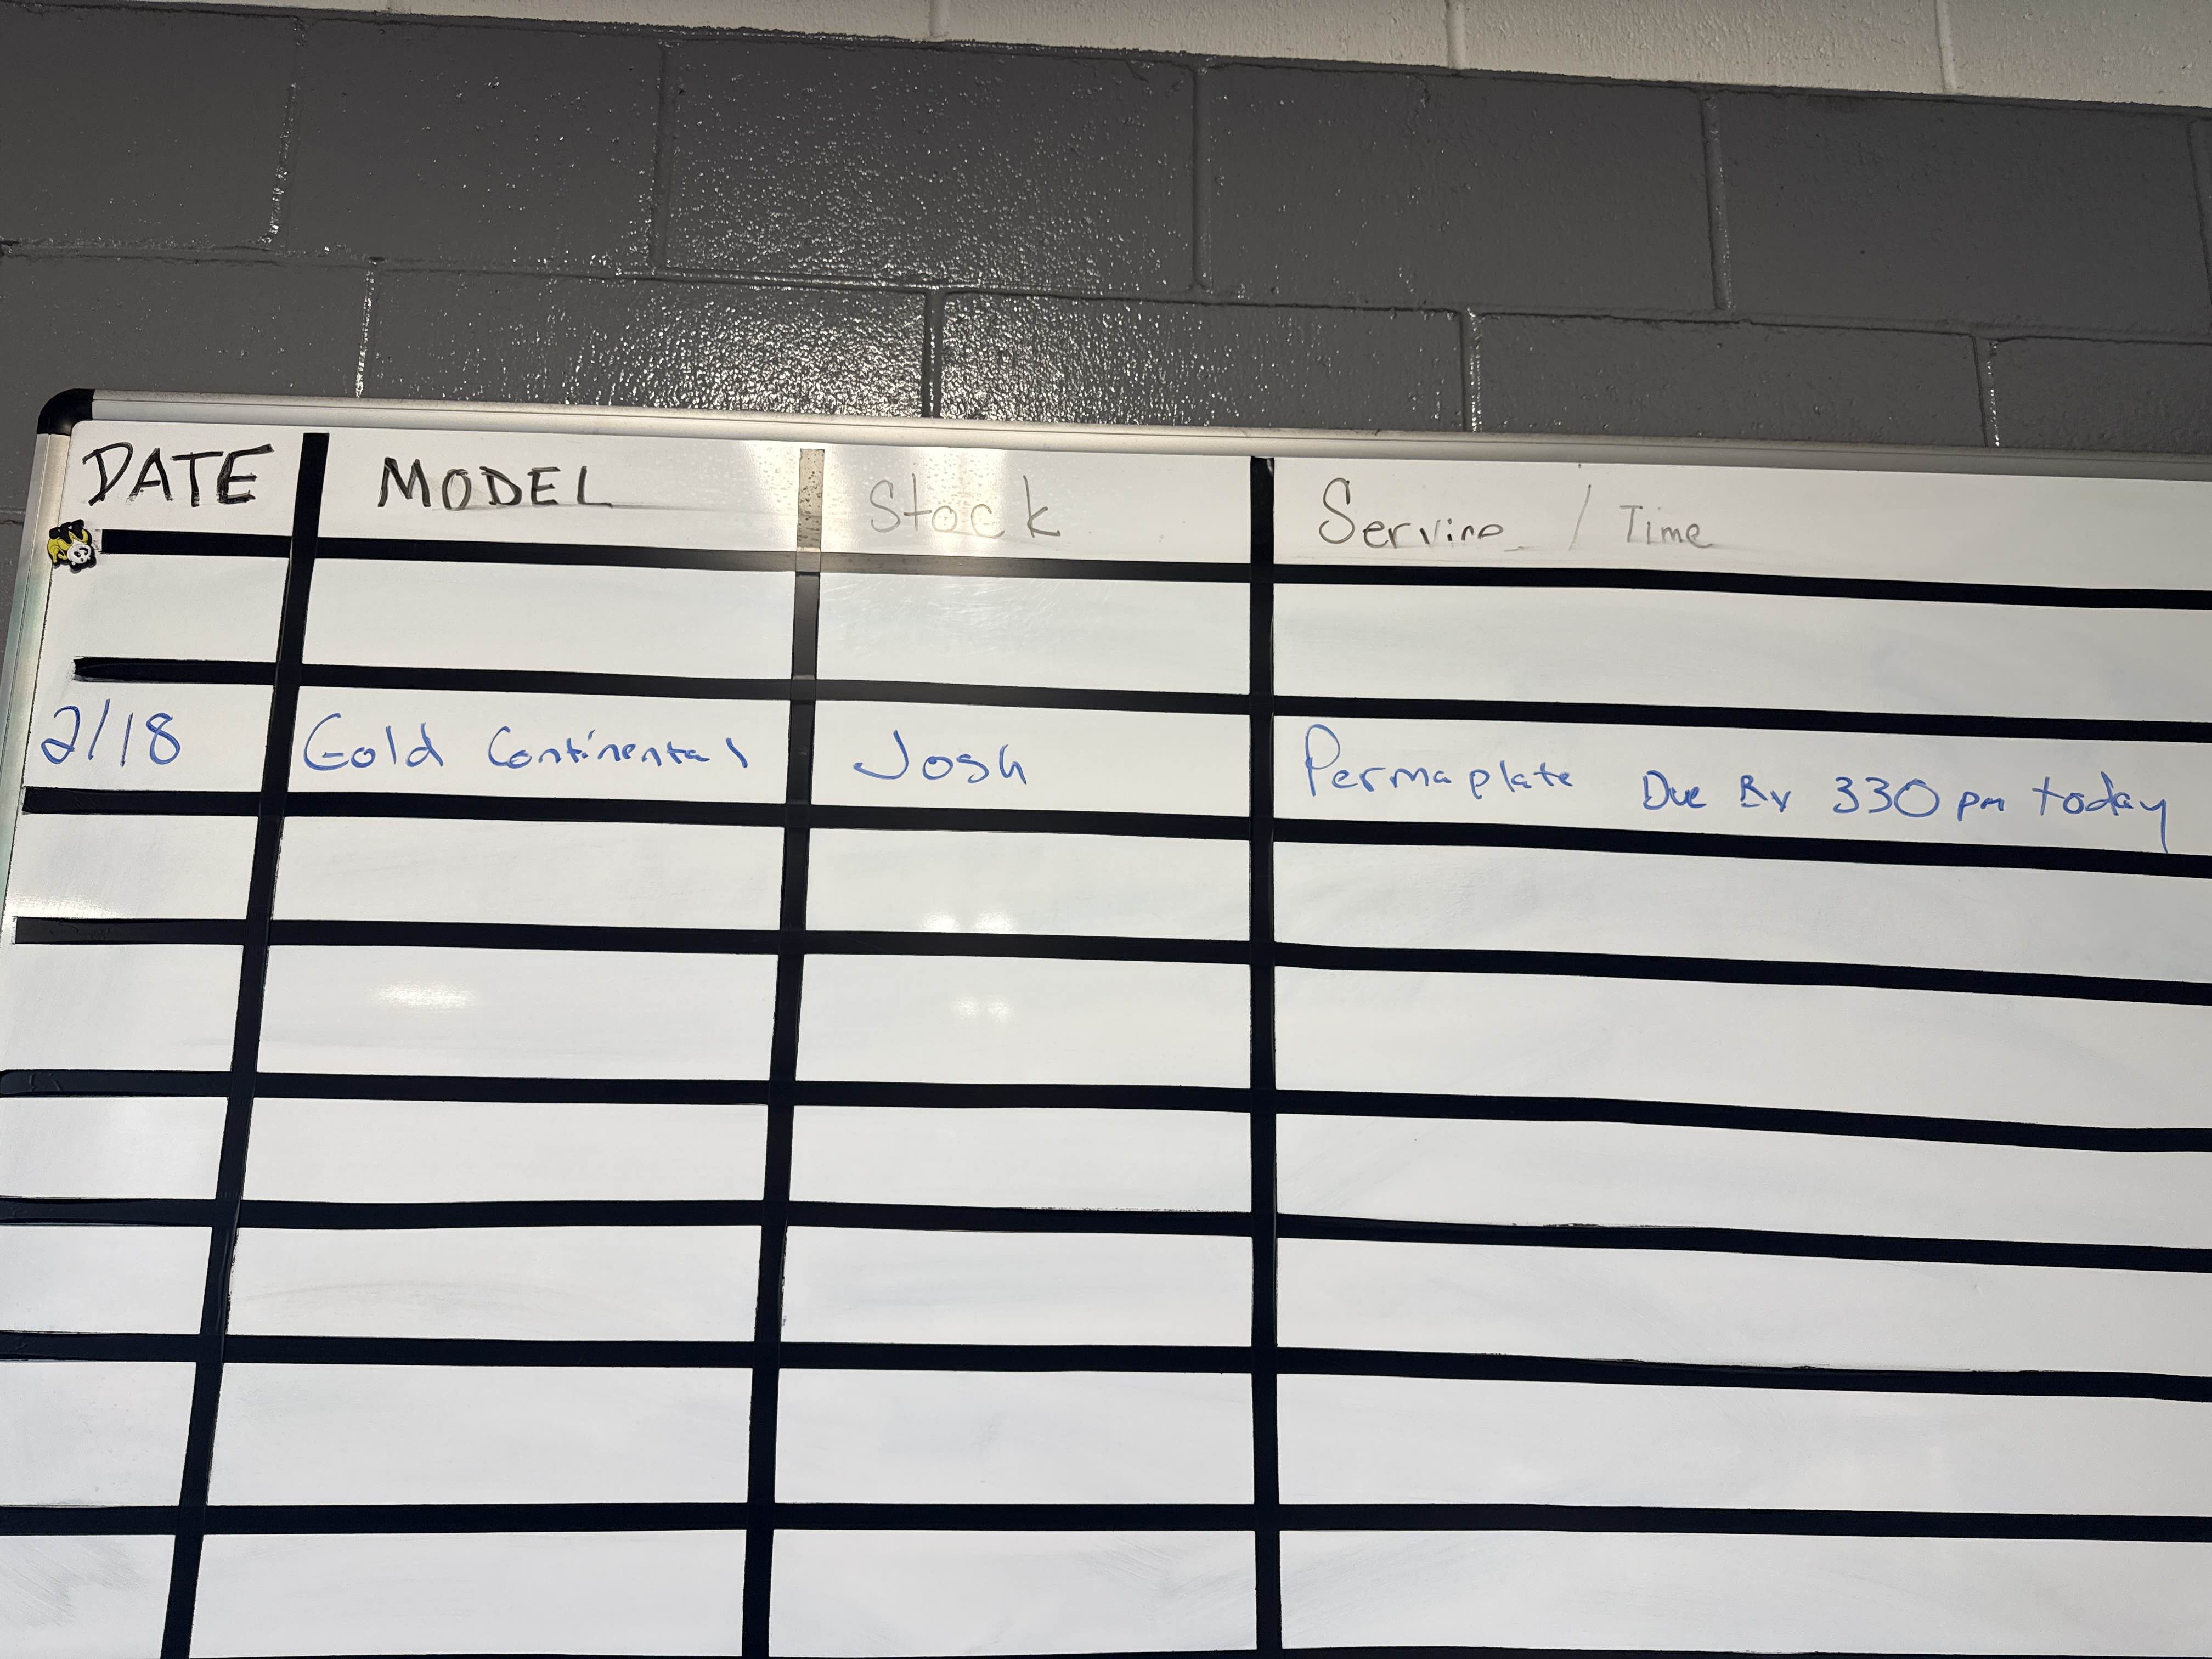 DATE MODEL Stock Service / Time
2/18 Gold Continental Josh Permaplate Due By 330 pm today